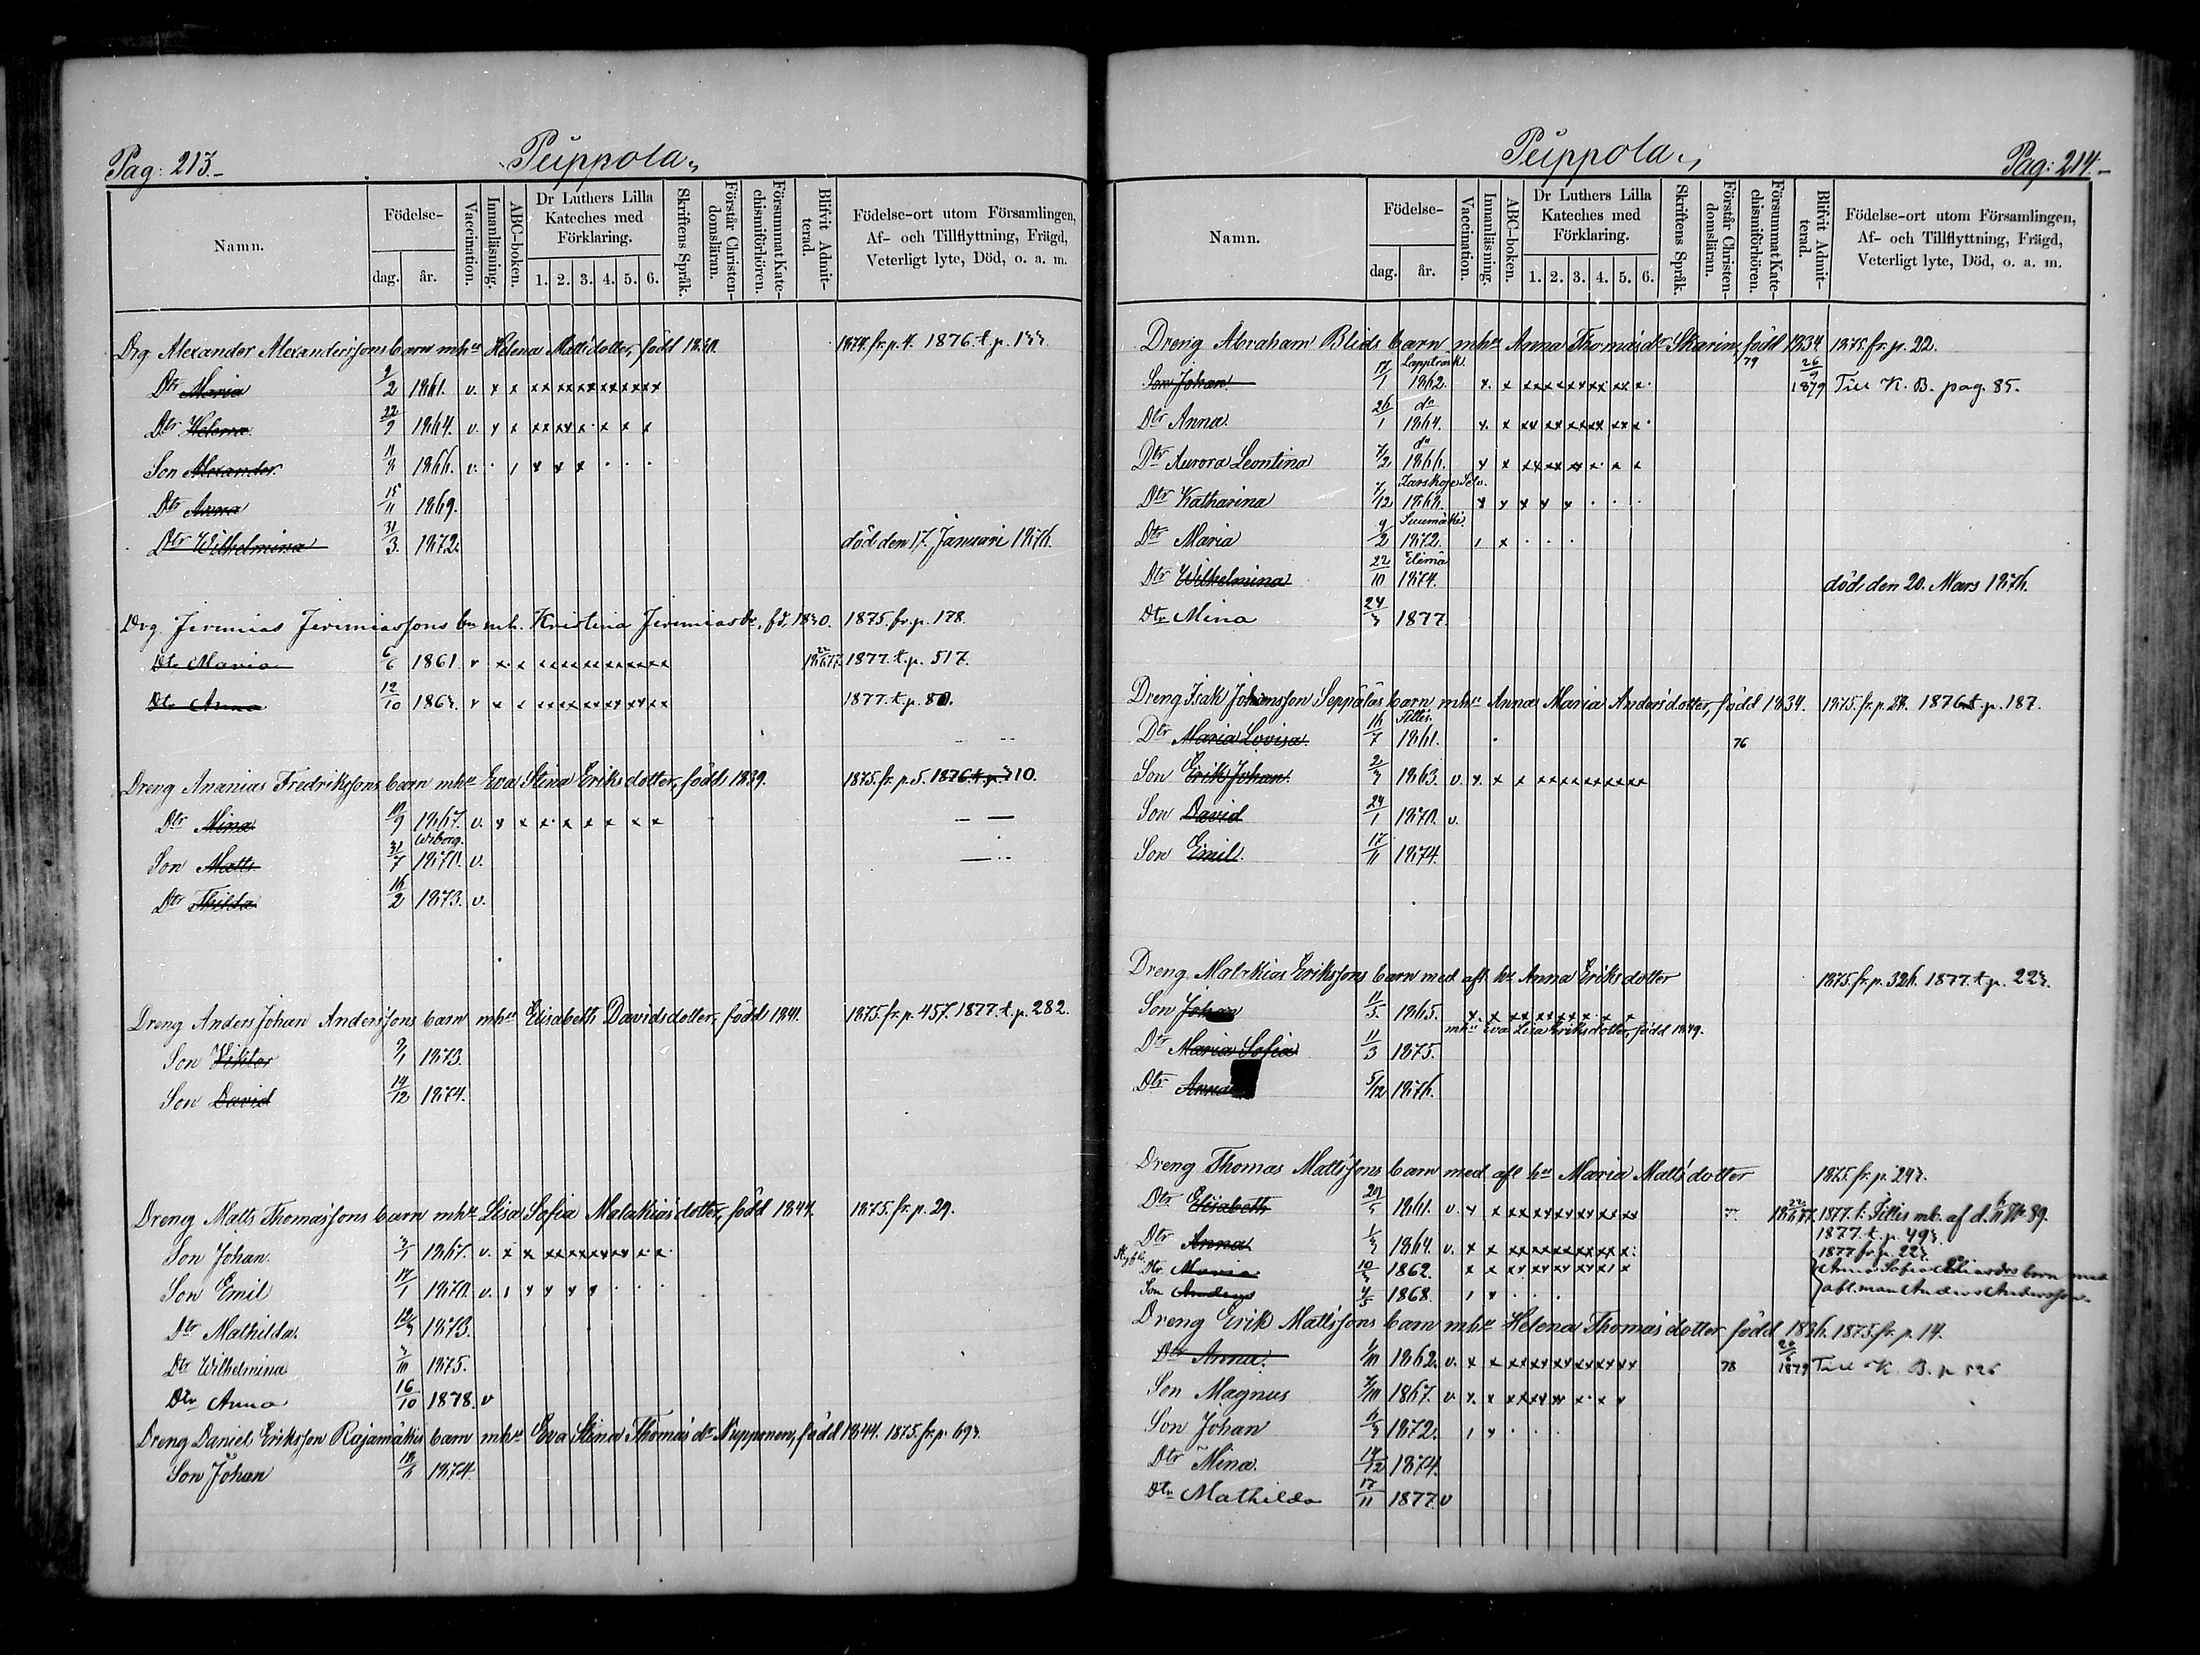 Pag: 213.
Peippola
Namn.
Födelse-
dag.
år.
Vaccination.
Innanläsning.
ABC-boken.
Dr Luthers Lilla Kateches med Förklaring.
1. 2. 3. 4. 5. 6.
Skriftens Språk.
Förstår Christendomsläran.
Försummat Katechismiförhören.
Blifvit Admitterad.
Födelse-ort utom Församlingen, Af- och Tillflyttning, Frägd, Veterligt lyte, Död, o. a. m.
Drg Alexander Alexanderssons barn mhu Helena Mattsdotter, född
Dtr Maria 2/2 1861. v. x x x x x x x x x x x x x
Dtr Helena 1864. v. x x x x x x x x x
Son Alexander 1866. v.
Dtr Anna 15/11 1869.
Dtr Wilhelmina 31/3 1872. död den 17 Januari 1876.
Drg Jeremias Jeremiassons bn mh. Kristina Jeremiasdr, fd, 1875. fr. p. 178.
Dtr Maria 6/6 1861 1877. t. p. 517.
Dtr Anna 12/10 1877 t. p. 80.
Dreng Ananias Fredrikssons barn mhu Eva Stina Eriksdotter, född 1839. 1875. fr. p. 5. 1876. t. p. 310.
Dtr Mina 1867. v.
Wiborg.
Son Matts 31/7 1870. v.
Dtr Thilda 16/2 1873. v.
Dreng Anders Johan Anderssons barn mhu Elisabeth Davidsdotter, född 1841. 1875. fr. p. 457. 1877. t. p. 282.
Son Viktor 9/1 1873.
Son David 14/12 1874.
Dreng Matts Thomassons barn mhu Lisa Sofia Malakiasdotter, född 1844. 1875. fr. p. 29.
Son Johan. 1867. v.
Son Emil 17/1 1870. v.
Dtr Mathilda. 1873.
Dtr Wilhelmina 1875.
Dtr Anna 16/10 1878. v
Dreng Daniel Eriksson Rajamäkis barn mhu Eva Stina Thomasdr Nupponen, född 1844. 1875. fr. p. 693.
Son Johan 1874
Peippola
Pag: 214.
Namn.
Födelse-
dag.
år.
Vaccination.
Innanläsning.
ABC-boken.
Dr Luthers Lilla Kateches med Förklaring.
1. 2. 3. 4. 5. 6.
Skriftens Språk.
Förstår Christendomsläran.
Försummat Katechismiförhören.
Blifvit Admitterad.
Födelse-ort utom Församlingen, Af- och Tillflyttning, Frägd, Veterligt lyte, Död, o. a. m.
Dreng Abraham Blids barn mhu Anna Thomasdr Skarin, född 1834 1875. fr. p. 22.
Lappträsk.
Son Johan 17/1 1862. 79 26/9 1879 Till K. B. pag. 85.
do
Dtr Anna. 26/1 1864.
do
Dtr Aurora Leontina 1866.
Zarskoje Selo.
Dtr Katharina 1868.
Suumäki.
Dtr Maria 9/2 1872.
Elimä
Dtr Wilhelmina 22/10 1874. död den 20. Mars 1876.
Dtr Mina 1877.
Dreng Isak Johansson Seppäläs barn mhu Anna Maria Andersdotter, född 1834. 1875. fr. p. 28. 1876 t. p. 187.
Sillis.
Dtr Maria Lovisa. 16/7 1861. 76
Son Erik Johan. 1863. v.
Son David 24/1 1870. v.
Son Emil. 17/11 1874.
Dreng Malakias Erikssons barn med afl. hu Anna Eriksdotter 1875. fr. p. 326. 1877. t. p. 223.
Son Johan 11/5 1865.
mhu Eva Lisa Eriksdotter, född 1849.
Dtr Maria Sofia 11/3 1875.
Dtr Anna 5/12 1876.
Dreng Thomas Mattssons barn med afl hu Maria Mattsdotter 1875. fr. p. 293.
Dtr Elisabeth 1861. v. 1877. t. Sillis mb. af d. 6/11 No 89.
Dtr Anna 1864. v. 1877. t. p. 493.
1877 fr. p. 223.
Dtr Maria 1862. Anna Sofia Eliasdrs barn med
Son Anders 1868. afl. man Anders Andersson.
Dreng Erik Mattssons barn mhu Helena Thomasdotter född 1836. 1875. fr. p. 14.
Dtr Anna. 1/10 1862. v. 78 1879 Till K. B. p 526
Son Magnus 1867. v
Son Johan 1872.
Dtr Mina. 14/12 1874.
Dtr Mathilda 17/11 1877. v